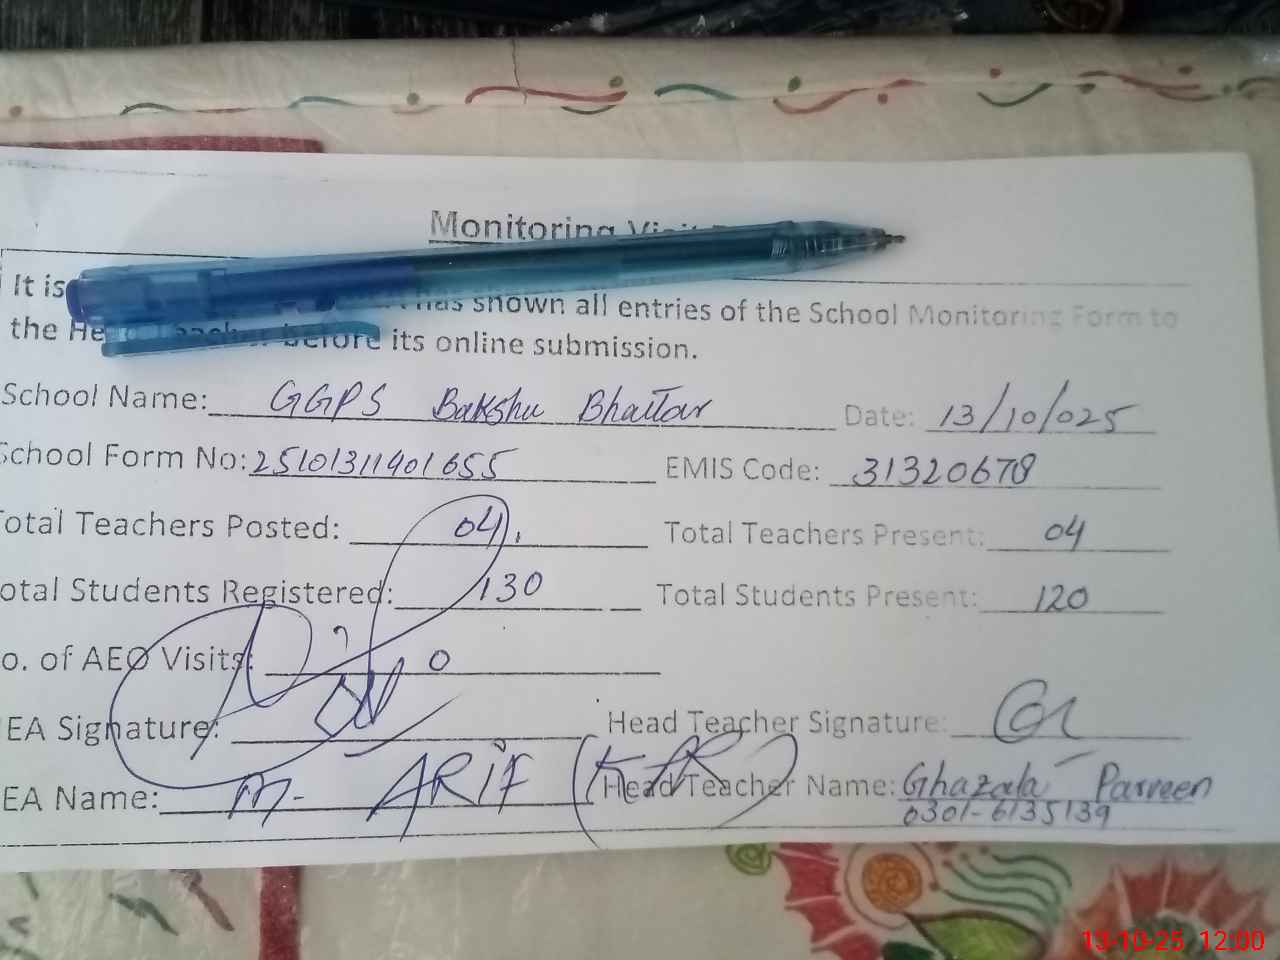 Monitoring Visit
It is has shown all entries of the School Monitoring Form to
the Head Teacher before its online submission.
School Name: GGPS Bakshu Bhattar Date: 13/10/025
School Form No: 25101311401655 EMIS Code: 31320678
Total Teachers Posted: 04 Total Teachers Present: 04
otal Students Registered: 130 Total Students Present: 120
o. of AEO Visits: 0
EA Signature: Head Teacher Signature:
EA Name: M. ARIF Head Teacher Name: Ghazala Parveen
0301-6135139
13-10-25 12:00